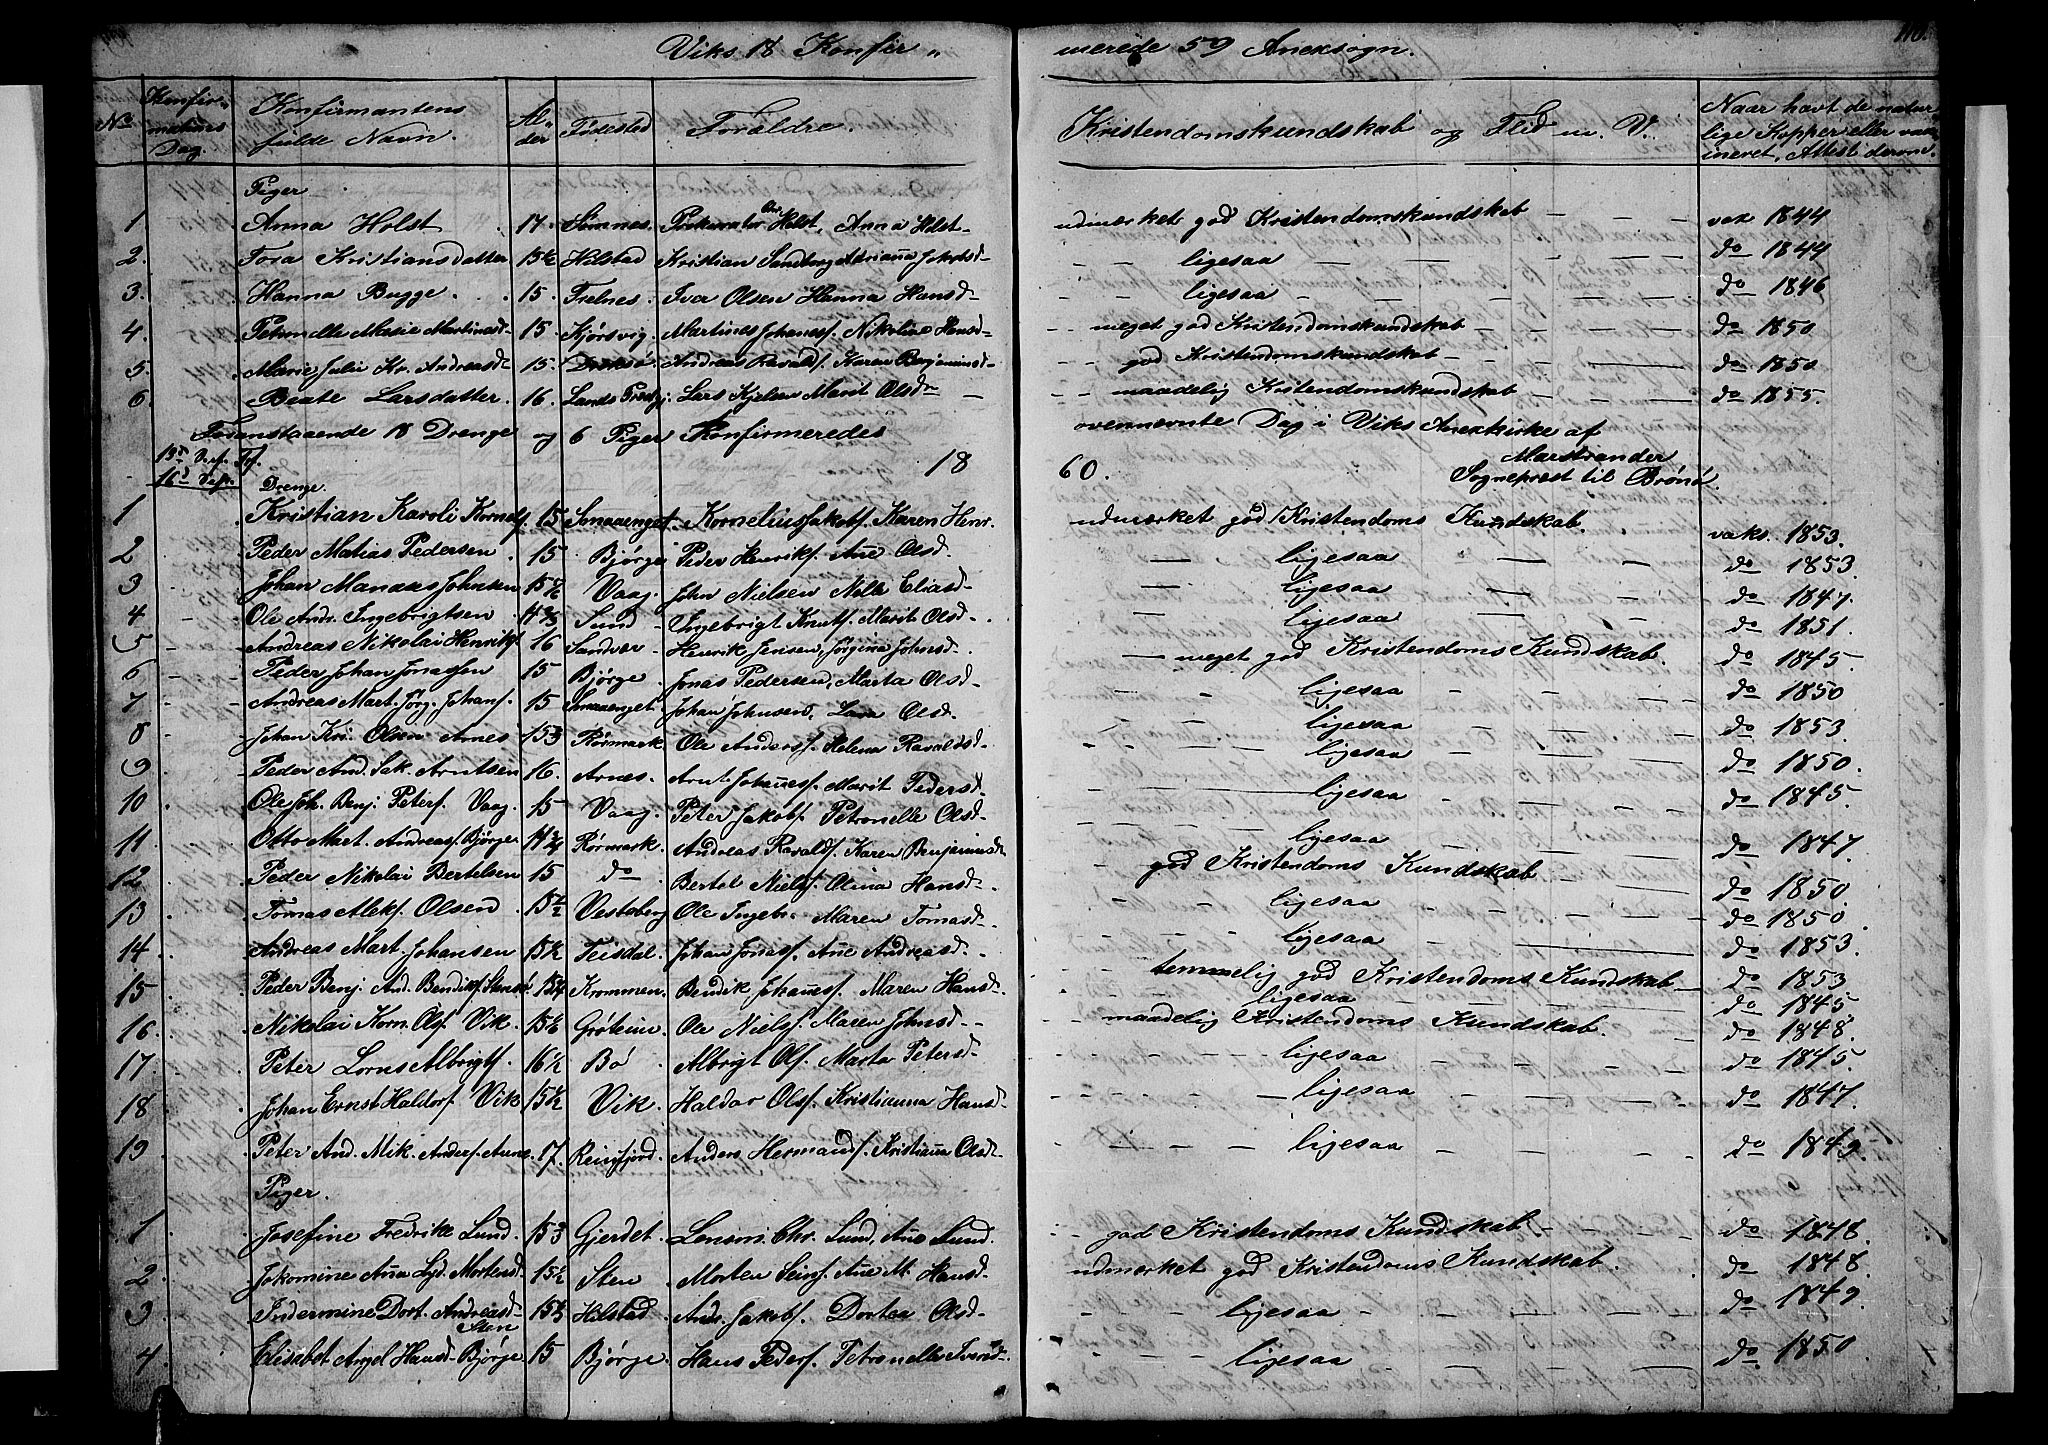 Viks 18 Konfir „ merede 59 Anexsogn. 110.
No Konfir„mations Dag. Konfirmantens fulde Navn. Al„der Fødested Forældre. Kristendomskundskab og Flid m. V. Naar havt de naturlige Kopper eller vaccineret, Attest derom.
Piger
1 Anna Holst 17. Sømnes. Prokurator Chr. Holst, Anna Holst udmærket god Kristendomskundskab vax 1844
2. Tora Kristiansdatter 15½ Hilstad Kristian Sandberg Adrianna Jakobsd ligesaa do 1844
3. Hanna Bugge 15. Trelnes. Iver Olsen Hanna Hansd ligesaa do 1846
4. Petrnelle Marie Martinusd 15. Kjørsvig. Martines Johanesf. Nikoline Hansd meget god Kristendomskundskab do 1850
5. Marie Juli Kr. Andreasd 15. Andreas Ravaldsf. Karen Benjaminsd god Kristendomskundskab do 1850
6. Beate Larsdatter. 16. Lars Kjelsen Marit Olsd maadelig Kristendomskundskab do 1855.
Foranstaaende 18 Drenge og 6 Piger Konfirmeredes ovennævnte Dag i Viks Anexkirke af
Marstrander
Sogneprest til Brønø.
16d Sep. 18 60.
Drenge.
1 Kristian Karoli Kornelsf. 15 Smaaenget. Kornelius Jakobsf. Karen Henr. udmærket god Kristendoms Kundskab. vaks. 1853.
2 Peder Matias Pedersen 15 Bjørge Peder Henriksf. Ane Olsd. ligesaa do 1853.
3 Johan Manaas Johnsen 15½ Vaag. John Nielsen Nelle Eliasd ligesaa do 1847.
4 Ole Andr. Ingebrigtsen 14¾ Sund Ingebrigt Knutsf. Marit Olsd. ligesaa do 1851.
5 Andreas Nikolai Henriksf 16 Sandvær Henrik Jensen, Jørgina Johnsd. meget god Kristendoms Kundskab. do 1845.
6 Peder Johan Jonassen 15 Bjørge. Jonas Pedersen, Marta Olsd ligesaa do 1850
7 Andreas Mart. Jørg. Johansf. 15 Smaaenget. Johan Johnsen, Lava Olsd. ligesaa do 1853.
8 Johan Kri. Olsen Arnes 15¾ Rørmark. Ole Andersf. Helena Ravaldsd. ligesaa do 1850.
9 Peder And. Sak. Arntsen 16. Arnes. Arnt Johanesf. Marit Pedersd. ligesaa do 1845.
10 Ole Joh. Benj. Petersf. Vaag. 15 Vaag. Peter Jakobsf. Petronelle Olsd. ligesaa do 1847.
11. Otto Mart. Andreasf. Bjørge 14¾ Rørmark. Andreas Ravaldsf. Karen Benjaminsd god Kristendoms Kundskab do 1850.
12 Peder Nikolai Bertelsen 15 do Bertel Nielsf. Olina Hansd. ligesaa do 1850.
13 Tomas Aleks. Olsen 15½ Vestsberg Ole Ingebr. Maren Tomasd. ligesaa do 1853.
14 Andreas Mart. Johansen 15½ Teisdal. Johan Jonasf. Ane Andreasd. temmelig god Kristendoms Kundskab do 1853
15 Peder Benj. And. Bendiksf. 15¼ Krommen. Bendik Johanesf. Maren Hansd. ligesaa do 1845.
16. Nikolai Korn. Olsf. Vik. 15½ Grøteim. Ole Nielsf. Maren Johnsd maadelig Kristendoms Kundskab. do 1848.
17 Peter Lorns Albrigtsf. 16½ Bø Albrigt Olsf. Marta Petersd. ligesaa do 1845
18 Johan Ernst Haldorsf. Vik 15½ Vik. Haldor Olsf. Kristianna Hansd. ligesaa do 1847.
19 Peter And. Mik. Andersf. 17. Reinsfjord. Anders Hermansf. Kristianna Olsd. ligesaa do 1849.
Piger.
1 Josefine Fredrike Lund. 15¾ Gjerdet. Lensm. Chr. Lund, Ane Lund. god Kristendoms Kundskab do 1848.
2 Jakomine Ana Lyd. Mortensd. 15½ Sten Morten Ane M. Hansd. udmærket god Kristendoms Kundskab. do 1848.
3 Indermine Dort. Andreasd. Sten 15¾ Hilstad. Andr. Jakobsf. Dortea Olsd ligesaa do 1849
4 Elisabet Angel Hansd. Bjørge 15 Bjørge. Hans Pedersf. Petronelle Iversd. ligesaa do 1850.